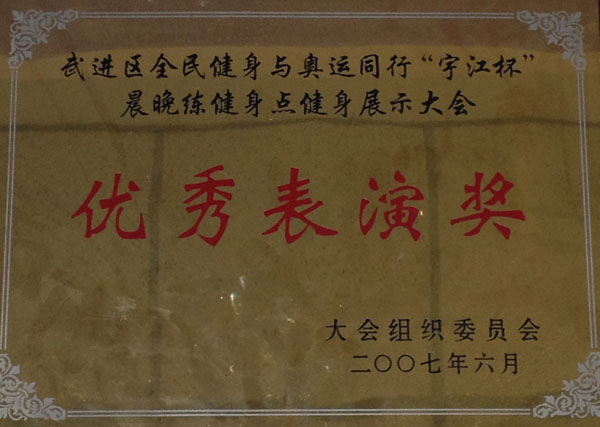 武进区全民健身与奥运同行“宇江杯”
晨晚练健身点健身展示大会
优秀表演奖
大会组织委员会
二〇〇七年六月